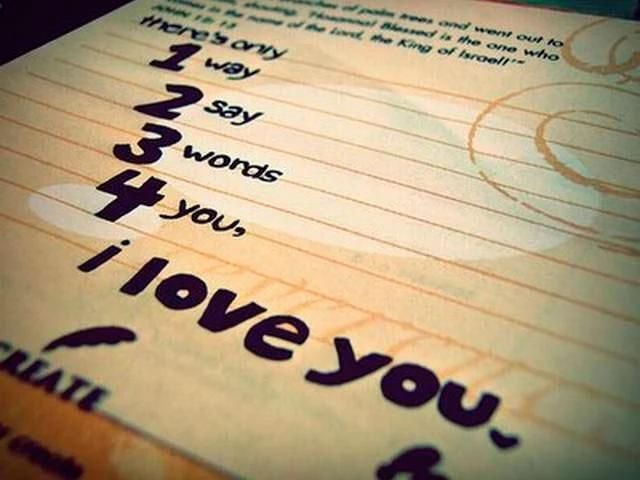 branches of palm trees and went out to
shouting, "Hosanna! Blessed is the one who
comes in the name of the Lord, the King of Israel!"
JOHN 12: 13
there's only
1 way
2 say
3 words
4 you,
i love you.
CREATE
create